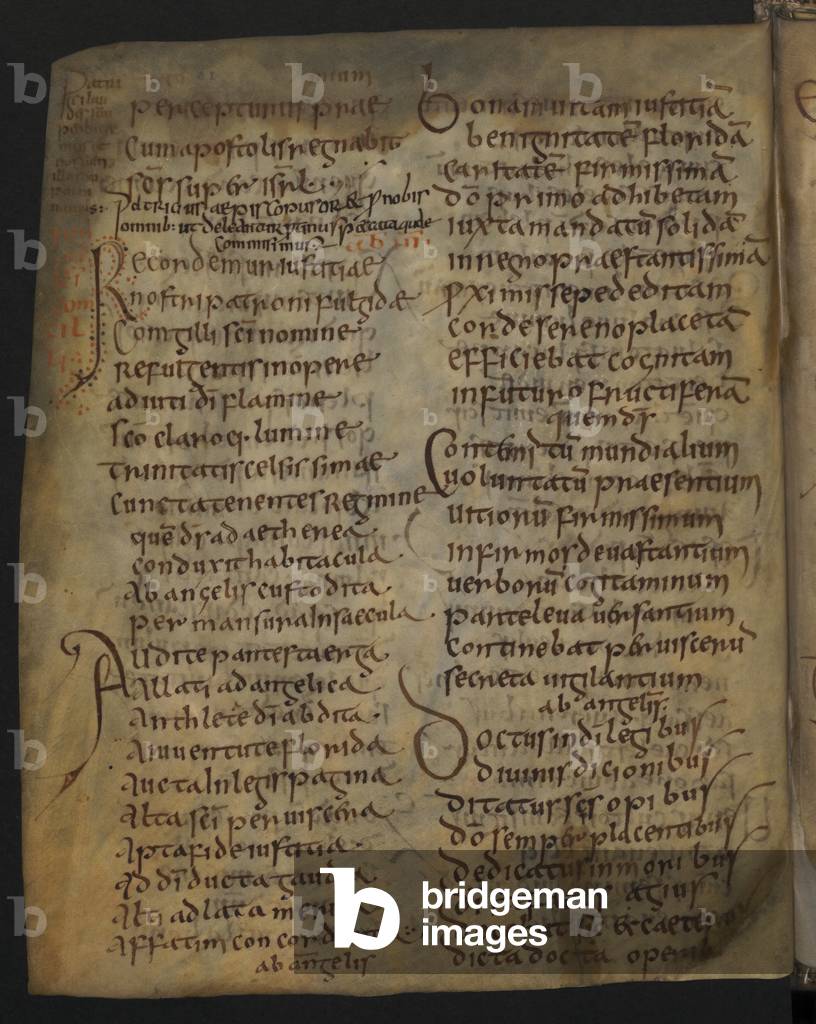 perceptunus prae
Cum apostolis regnabit
scs super isrl
patricius aepiscopus or& p nobis
omnib: ut deleantur ptinus peccata quae
commisimus
Recordemur iustitiae
nostri patroni fulgidae
Comgilli sci nomine
refulgentis in opere
adiuti dī flamine
sco claroq. lumine
trinitatis celsissimae
cuncta tenentes regmine
quē dr ad aetherea
conduxit habitacula
Ab angelis custodita
permansura in saecula
Audite pantes ta erga
Allati ad angelica
Anthletē dī abdita
A iuventute florida
Aucta in legis pagina
Alta sci per viscera
Apta fide iustitia
Ad dī ducta
Alti adlata
Affatim
ab angelis
Bonam vitam iustitiā
benignitatē floridā
caritatē firmissimā
dō primo adhibetam
iuxta mandatū solidā
in regno praestantissimā
pximis sepe deditam
corde sereno placetā
efficiebat cognitam
in futurō fructiferā
quem dr
Contempsit tū mundialium
voluntatū praesentium
vitionū firmissimum
infirmos devastantium
verbonū cogitaminum
parteleua versantium
continebat per viscerū
secreta vigilantium
ab angelis
Doctus in dī legibus
divinis dicionibus
ditatur scs opibus
dō semper placentibus
dedicatus in moribus
agius
& caet
dicta docta
b
bridgeman
images